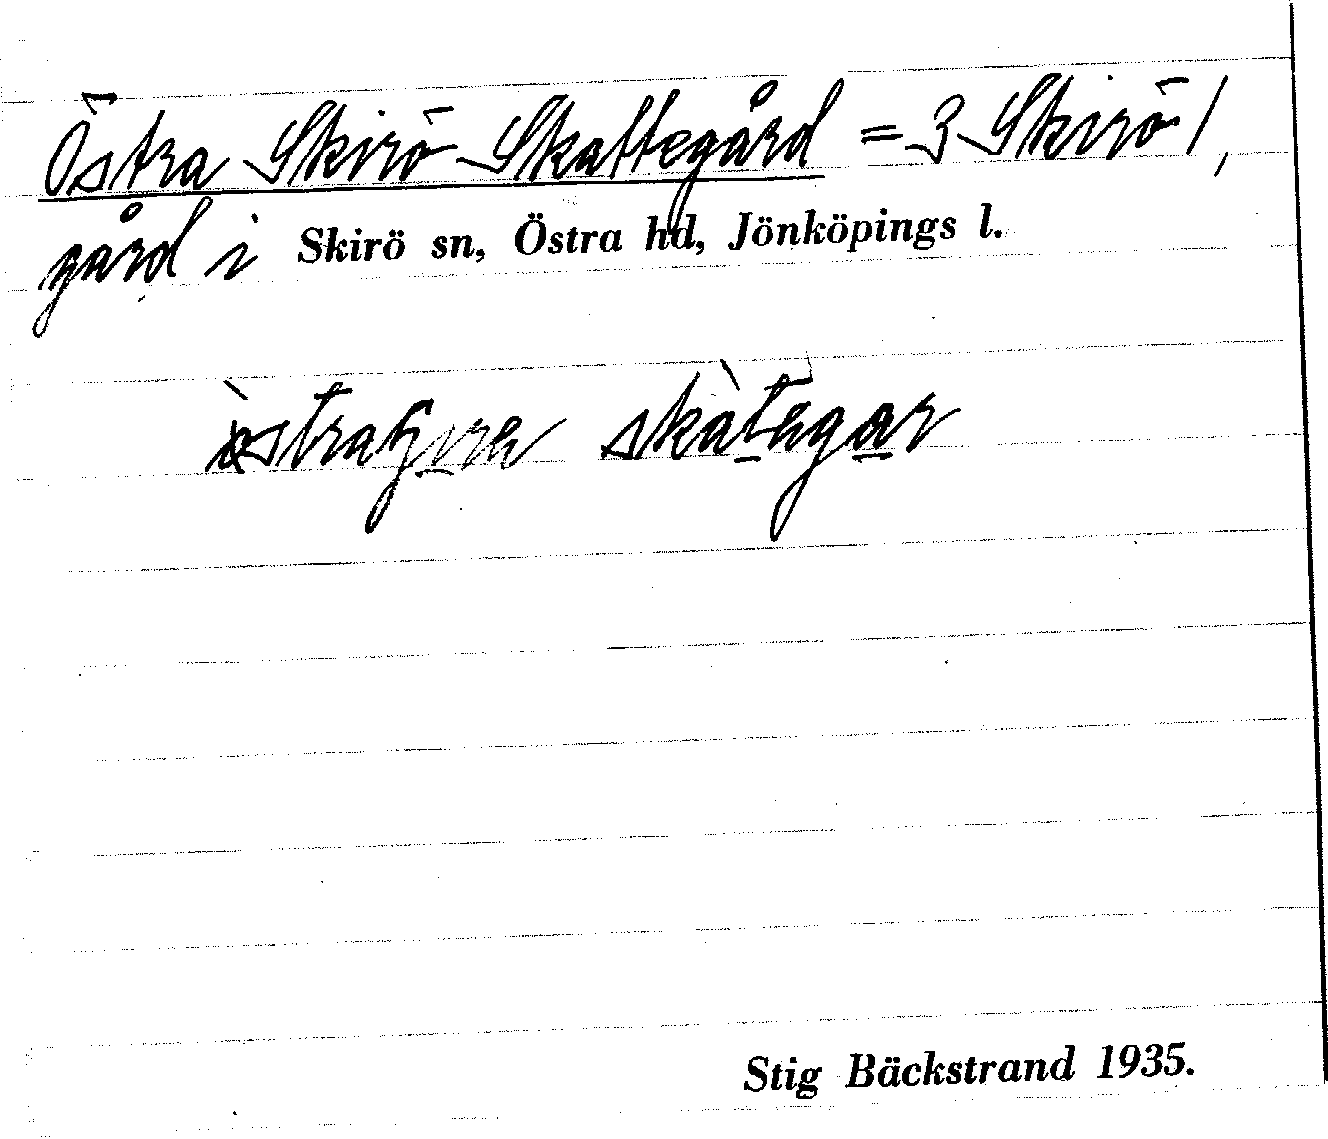 Östra Skirö Skattegård = 3 Skirö 1,
gård i Skirö sn, Östra hd, Jönköpings l.
Stig Bäckstrand 1935.